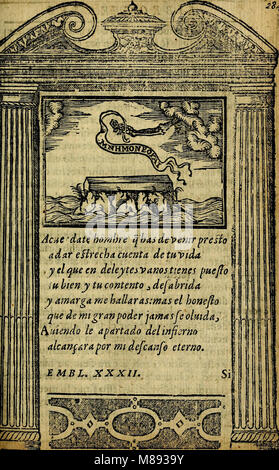 28
MNHMONEO
Acue date hombre q̃ has de venir presto
a dar estrecha cuenta de tu vida
y el que en deleytes vanos tienes puesto
tu bien y tu contento, desabrida
y amarga me hallaras: mas el honesto
que de mi gran poder jamas se oluida,
Auiendo le apartado del infierno
alcançara por mi descanso eterno.
EMBL. XXXII. Si
alamy stock photo
M8939Y